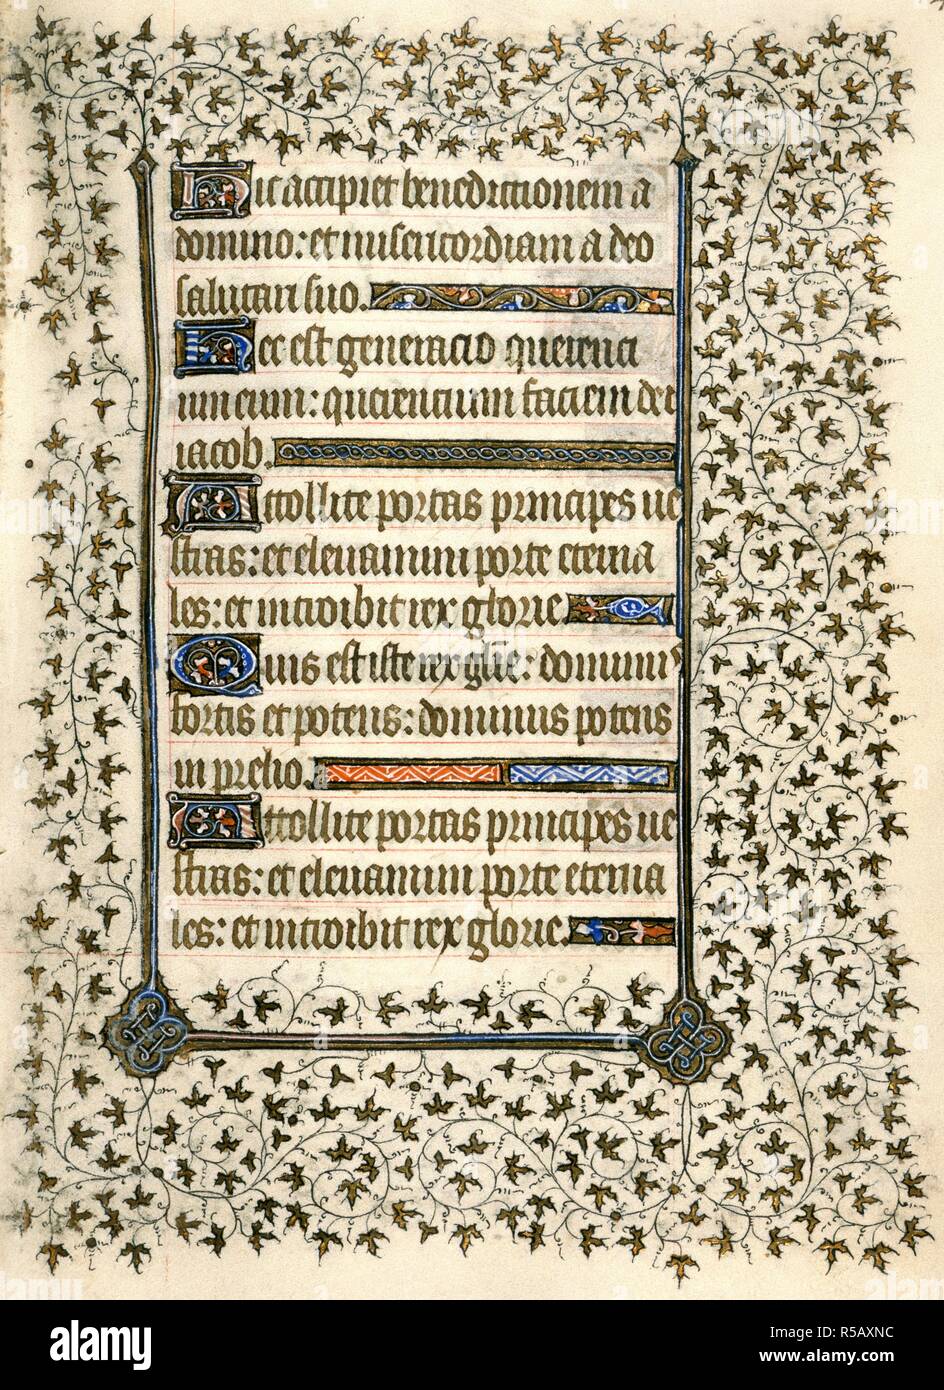 Hic accipiet benedictionem a
domino: et misericordiam a deo
salutari suo.
Hec est generacio querenci
um eum: querencium faciem dei
iacob.
Attollite portas principes ue
stras: et eleuamini porte eterna
les: et introibit rex glorie.
Quis est iste rex glie: dominus
fortis et potens: dominus potens
in prelio.
Attollite portas principes ue
stras: et eleuamini porte eterna
les: et introibit rex glorie.
alamy
alamy
alamy
Image ID: R5AXNC
www.alamy.com